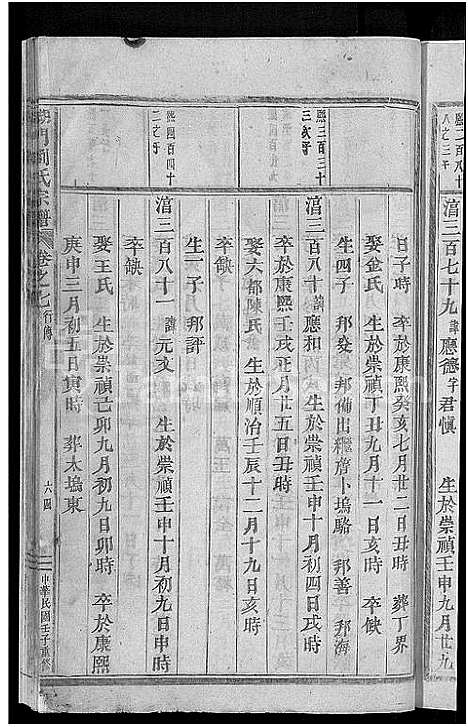 熙二百八十
八之三子
涫三百七十九 諱應德字君慎 生於崇禎壬申九月廿九
日子時 卒於康熙癸亥七月廿二日丑時 葬丁界
娶金氏 生於崇禎丁丑九月十一日亥時 卒缺
生四子 邦發 邦備出繼齊卜塢駱 邦善 邦海
熙三百三十
三次子
涫三百八十 諱應和 生於崇禎壬申十月初四日戌時
卒於康熙壬戌正月廿五日丑時
娶六都陳氏 生於順治壬辰十二月十九日亥時
卒缺
生一子 邦評
熙四百四十
二之子
涫三百八十一 諱元文 生於崇禎壬申十月初九日申時
卒缺
娶王氏 生於崇禎己卯九月初九日卯時 卒於康熙
庚申三月初五日寅時 葬木塢東
劉氏宗譜 卷之七 行傳 六四 中華民國壬子重修